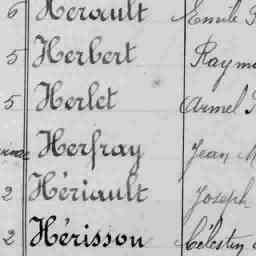 6 Hérault Emile
5 Herbert Raym
5 Herlet Armel
Herfray Jean M
2 Hériault Joseph
2 Hérisson Célestin